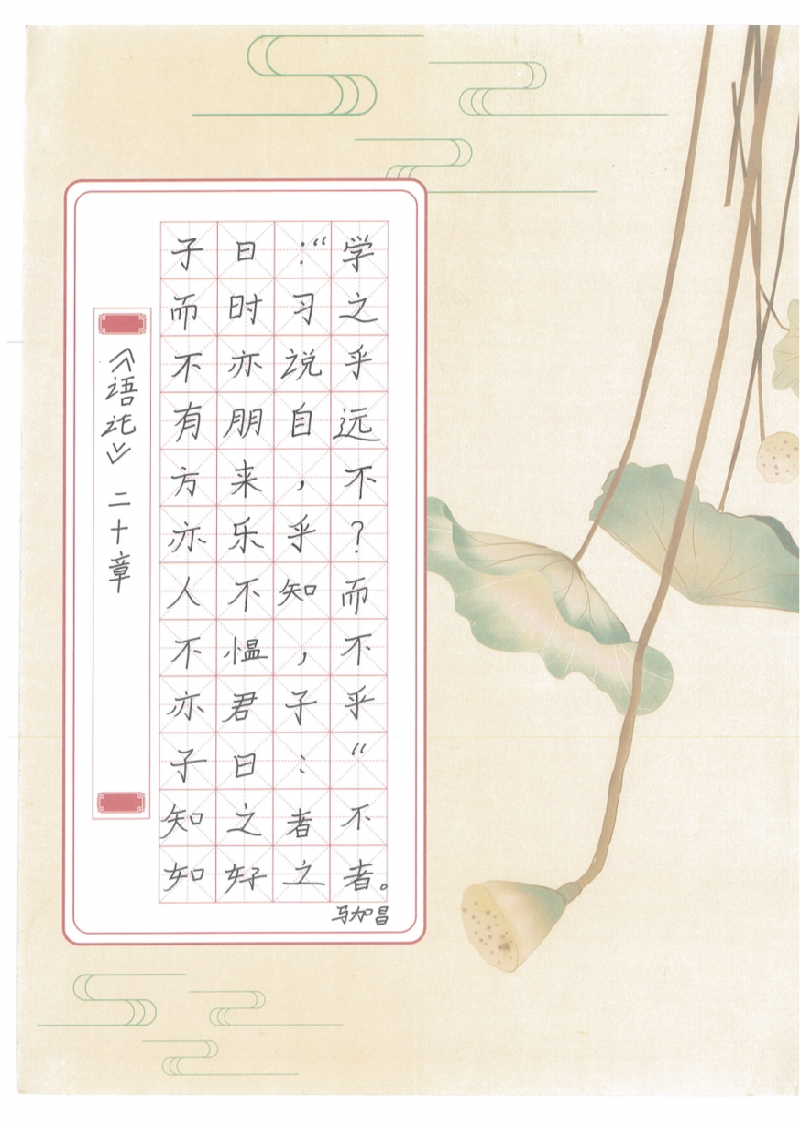 子曰：“学
而时习之
不亦说乎
有朋自远
方来，不
亦乐乎？
人不知而
不愠，不
亦君子乎
子曰：“
知之者不
如好之者。
《语论》 二十章
马加昌